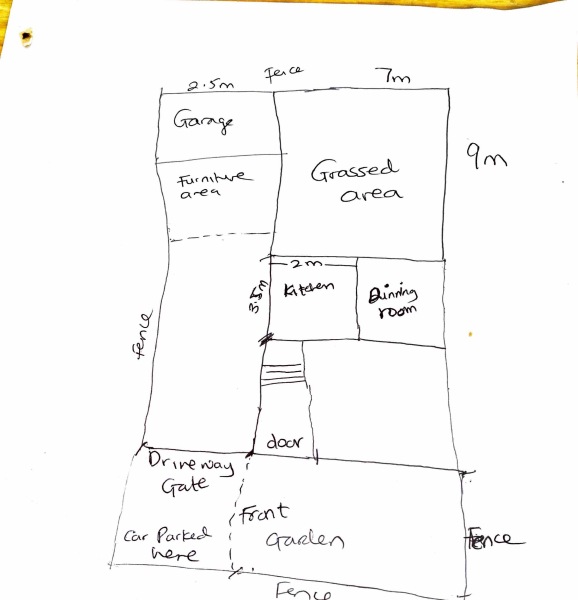 2.5m Fence 7m
Garage
9m
Furniture
area
Grassed
area
2m
3.5m
Kitchen
Dinning
room
Fence
door
Driveway
Gate
Front
Garden
Car Parked
here
Fence
Fence